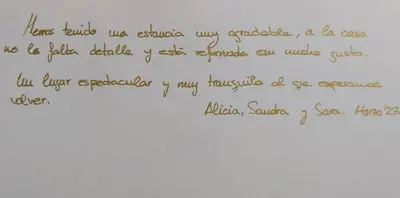 Hemos tenido una estancia muy agradable, a la casa
no le falta detalle y está reformada con mucho gusto.
Un lugar espectacular y muy tranquilo al que esperamos
volver.
Alicia, Sandra y Sara. Marzo '23